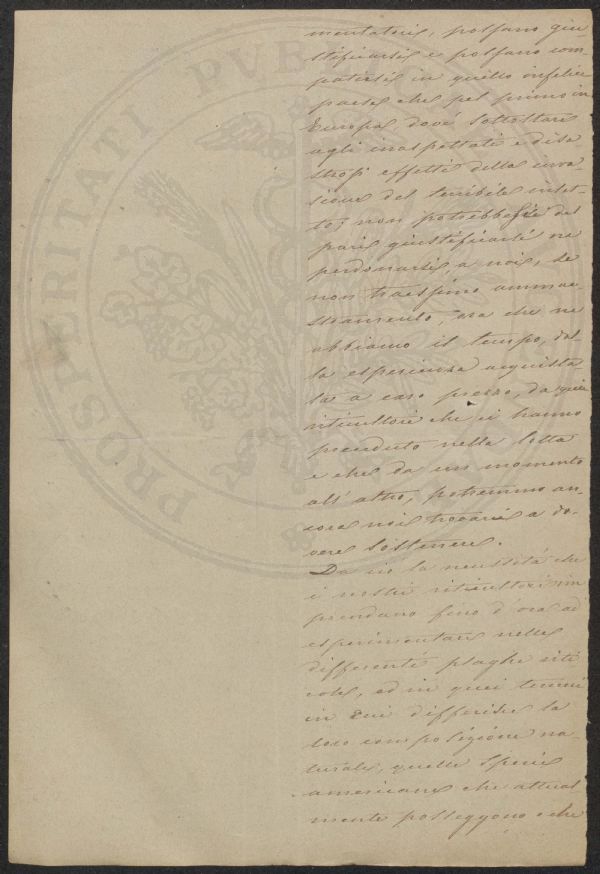 PROSPERITATI PVBLICAE
mentatori, possano giu-
stificarsi e possano com-
patirsi in quello infelice
paese che pel primo in
Europa dové sottostare
agli inaspettati e disa-
strosi effetti della inva-
sione del terribile inset-
to; non potrebbesi del
pari giustificarsi ne
perdonarsi, a noi, se
non traessimo ammae-
stramento, ora che ne
abbiamo il tempo, del-
la esperienza acquista-
ta a caro prezzo, da quei
viticultori che ci hanno
preceduto nella lotta
e che da un momento
all' altro, potremmo an-
cora noi trovarci a do-
vere sostenere.
Da ciò la necessità che
i nostri viticultori im
prendano fino d'ora ad
esperimentare nelle
differenti plaghe viti
cole, ed in quei terreni
in cui differisce la
loro composizione na-
turale, quelle specie
americane che attual
mente posseggono e che